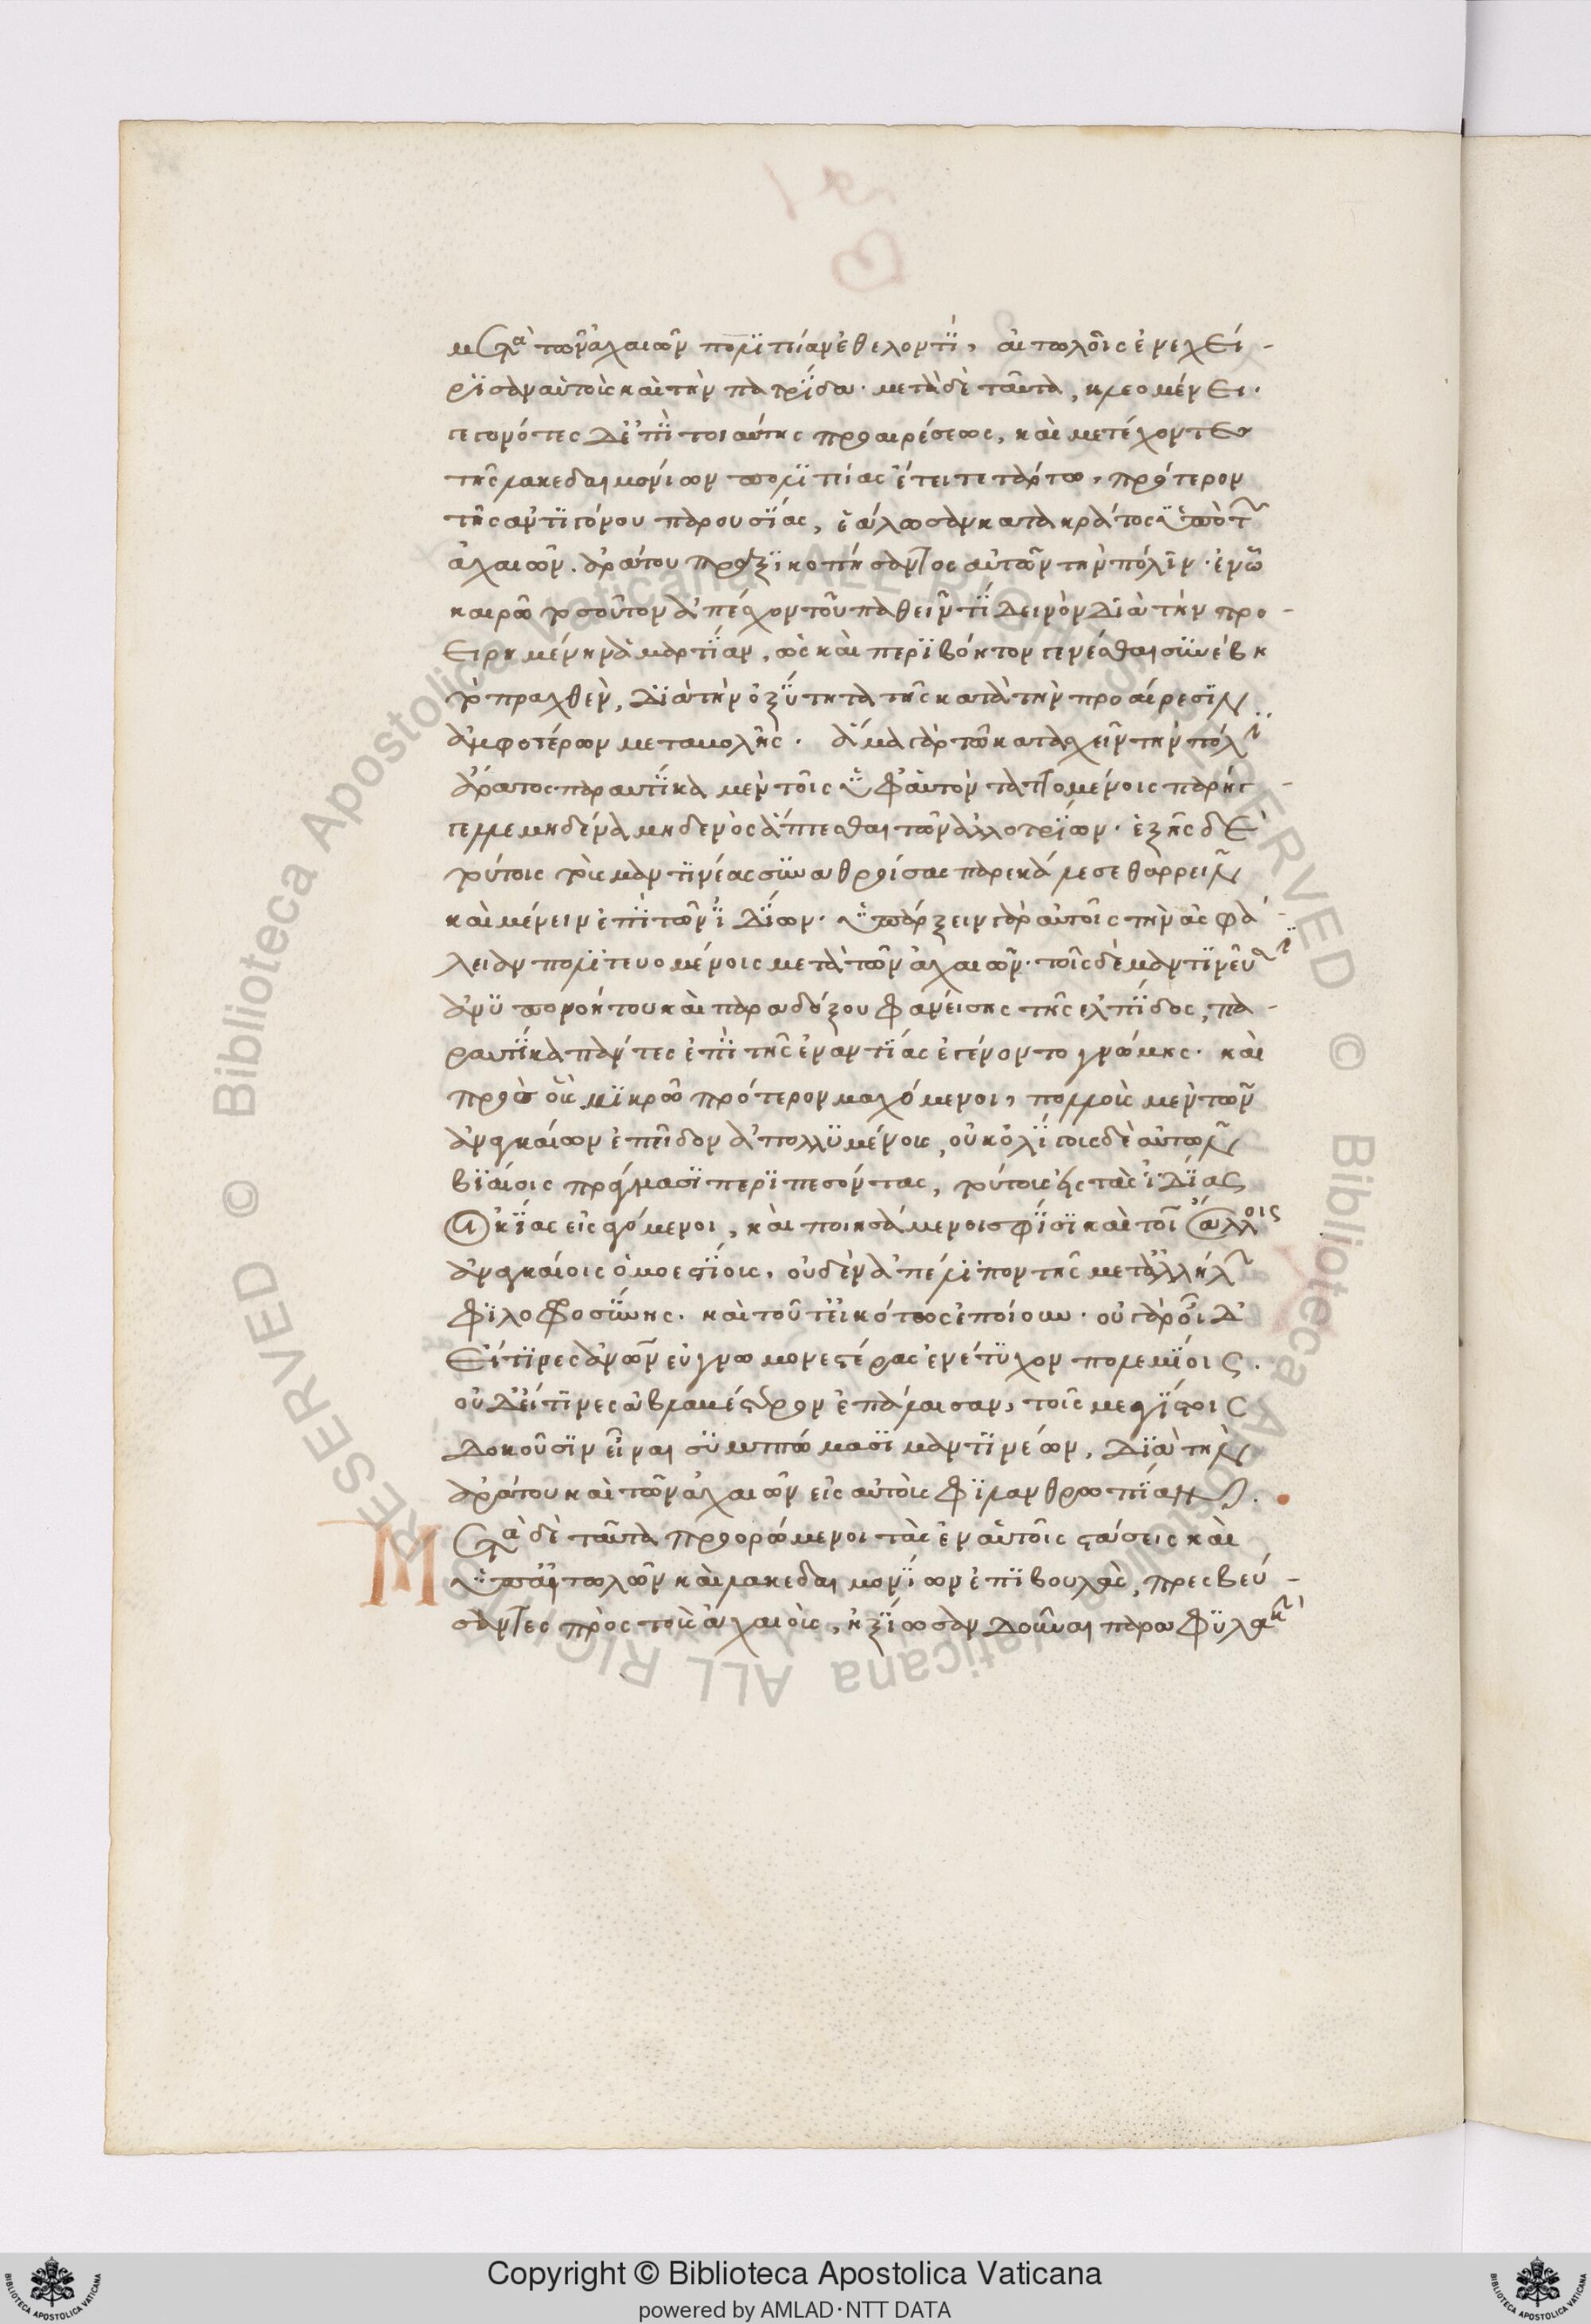 μετὰ τῶν ἀχαιῶν πολϊτείαν ἐθελοντὶ, αἰτωλοῖς ἐνεχεί-
ρϊσαν αὑτοὺς καὶ τὴν πατρίδα· μετὰ δὲ ταῦτα, κλεομένει·
γεγονότες δ' ἐπὶ τοιαύτης προαιρέσεως, καὶ μετέχοντες
τῆς λακεδαιμονίων πολϊτείας ἔτει τετάρτω, πρότερον
τῆς ἀντϊγόνου παρουσίας, ἑάλωσαν κατὰ κράτος ὑπὸ τῶν
ἀχαιῶν. ἀράτου πραξικοπήσαντος αὐτῶν τὴν πόλιν· ἐν ῶ
καιρῶ τοσοῦτον ἀπέσχον τοῦ παθεῖν τὶ δεινὸν διὰ τὴν προ-
ειρημένην ἁμαρτίαν, ὡς καὶ περϊβόητον γενέσθαι συνέβη
τὸ πραχθὲν, διὰ τὴν ὀξύτητα τῆς κατὰ τὴν προαίρεσιν
ἀμφοτέρων μεταβολῆς. ἅμα γὰρ τῶ κατασχεῖν τὴν πόλϊν
ἄρατος παραυτίκα μὲν τοῖς ὑφ' αὑτὸν ταττομένοις παρήγ-
γελλε μηδένα μηδενὸς ἅπτεσθαι τῶν ἀλλοτρίων· ἑξῆς δὲ
τούτοις τοὺς μαντϊνέας συναθροίσας παρεκάλεσε θαρρεῖν
καὶ μένειν ἐπὶ τῶν ἰδίων· ὑπάρξειν γὰρ αὐτοῖς τὴν ἀσφά-
λειαν πολϊτευομένοις μετὰ τῶν ἀχαιῶν· τοῖς δὲ μαντϊνεῦσϊ
ἀνϋπονοήτου καὶ παραδόξου φανείσης τῆς ἐλπίδος, πα-
ραυτίκα πάντες ἐπὶ τῆς ἐναντίας ἐγένοντο γνώμης· καὶ
πρὸς οὓς μϊκρῶ πρότερον μαχόμενοι, πολλοὺς μὲν τῶν
ἀναγκαίων ἐπεῖδον ἀπολλϋμένους, οὐκ ὀλίγους δὲ αὐτῶν
βϊαίοις τραύμασϊ περϊπεσόντας, τούτους εἰς τὰς ἰδίας
οἰκίας εἰσαγόμενοι, καὶ ποιησάμενοι σφίσϊ καὶ τοῖς ἄλλοις
ἀναγκαίοις ὁμοεστίους, οὐδὲν ἀπέλϊπον τῆς μετ' ἀλλήλων
φϊλοφροσύνης. καὶ τοῦτ' εἰκότως ἐποίουν· οὐ γὰρ οἶδ'
εἴ τϊνες ἀνθρώπων εὐγνωμονεστέροις ἐνέτϋχον πολεμίοις.
οὐδ' εἴ τϊνες ἀβλαβέστερον ἐπάλαισαν, τοῖς μεγίστοις
δοκοῦσϊν εἶναι συμπτώμασϊ μαντϊνέων, διὰ τὴν
ἀράτου καὶ τῶν ἀχαιῶν εἰς αὐτοὺς φϊλανθρωπίαν.
Μετὰ δὲ ταῦτα προορώμενοι τὰς ἐν αὑτοῖς στάσεις καὶ
ὑπ' αἰτωλῶν καὶ λακεδαιμονίων ἐπϊβουλὰς, πρεσβεύ-
σαντες πρὸς τοὺς ἀχαιοὺς, ἠξίωσαν δοῦναι παραφϋλακὴν
Copyright © Biblioteca Apostolica Vaticana
powered by AMLAD·NTT DATA